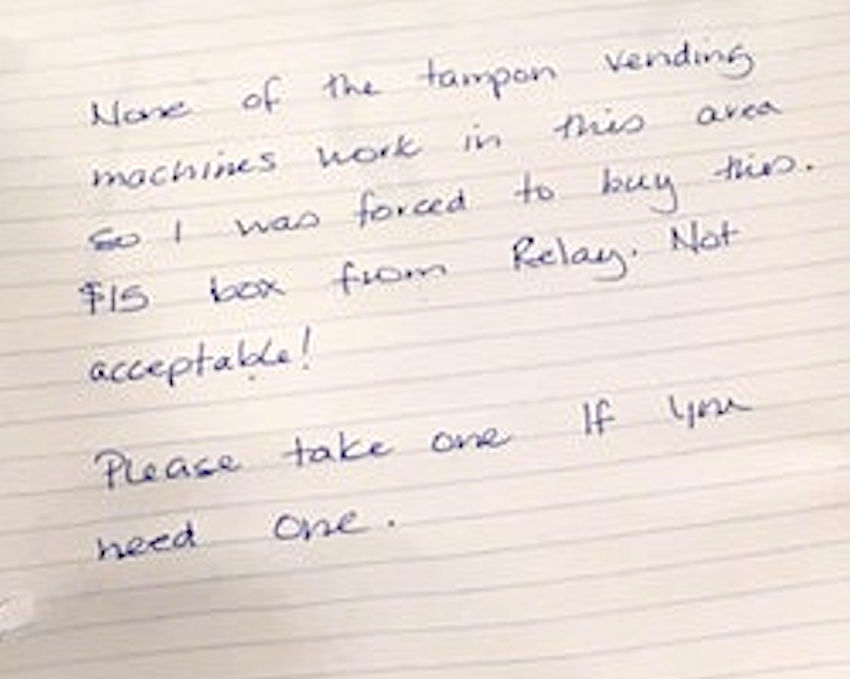 None of the tampon vending
machines work in this area
so I was forced to buy this.
$15 box from Relay. Not
acceptable!
Please take one If you
need one.